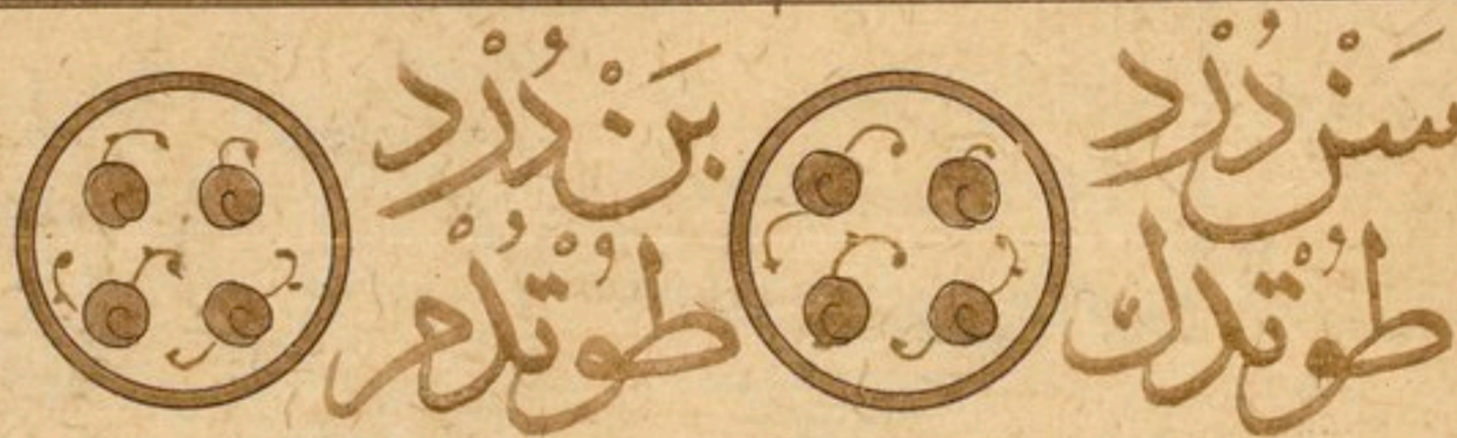 سَنْ دُرْد
طُوْتدك
بَنْ دُرْد
طُوْتدُمْ